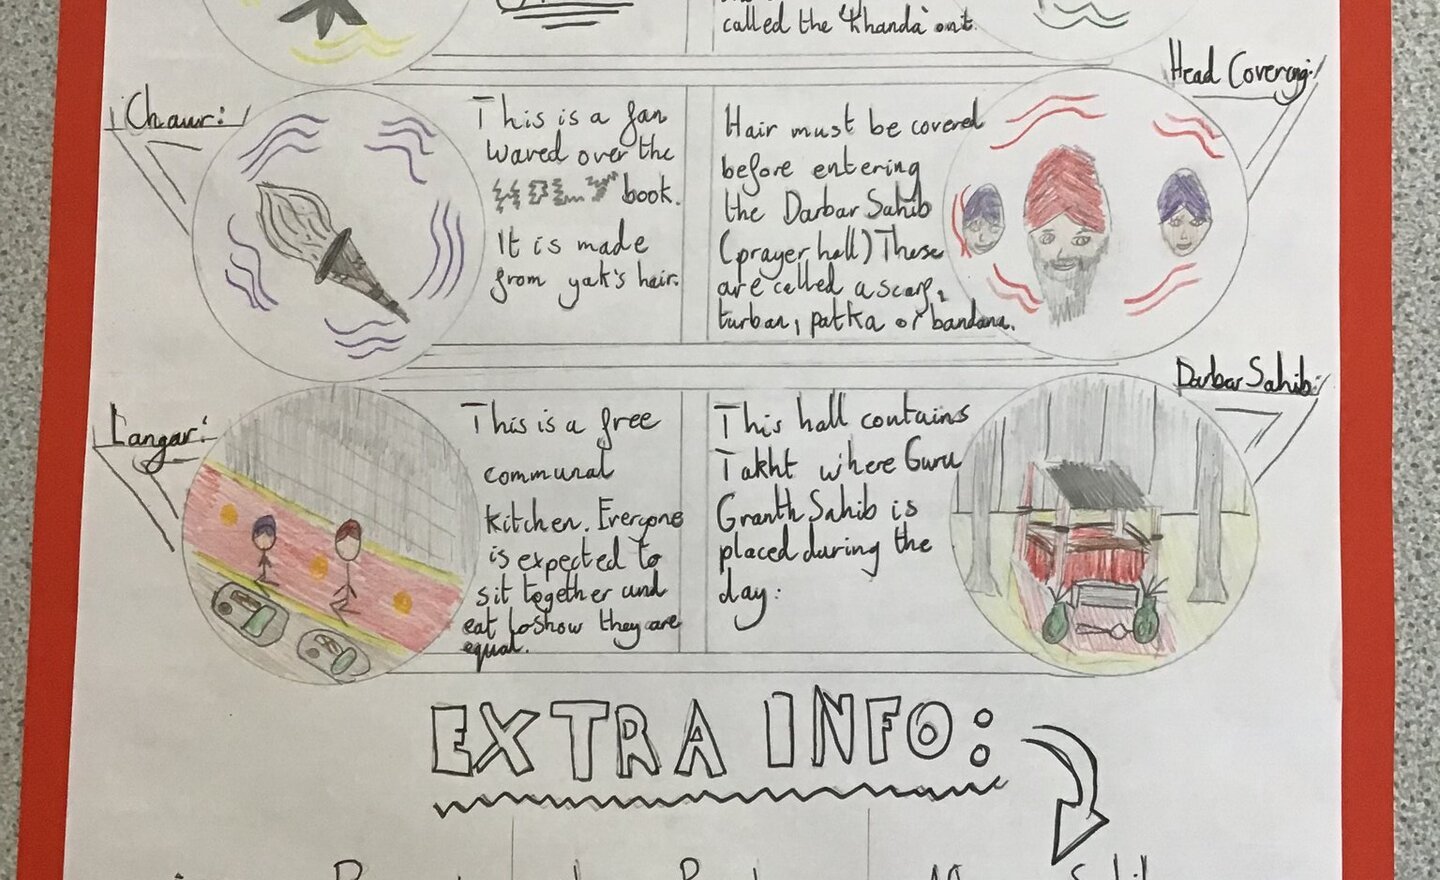 called the 'Khanda' ont.
Chaur:
This is a fan
waved over the
book.
It is made
from yak's hair.
Head Covering:
Hair must be covered
before entering
the Darbar Sahib
(prayer hall) These
are called a scarf,
turban, patka or bandana.
Langar:
This is a free
communal
kitchen. Everyone
is expected to
sit together and
eat to show they are
equal.
Darbar Sahib:
This hall contains
Takht where Guru
Granth Sahib is
placed during the
day:
EXTRA INFO: